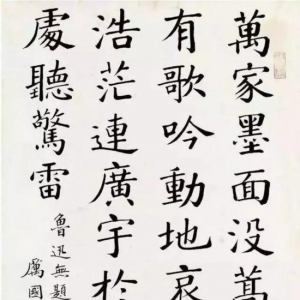 萬家墨面没蒿
有歌吟動地哀
浩茫連廣宇於
處聽驚雷
魯迅無題
厲國